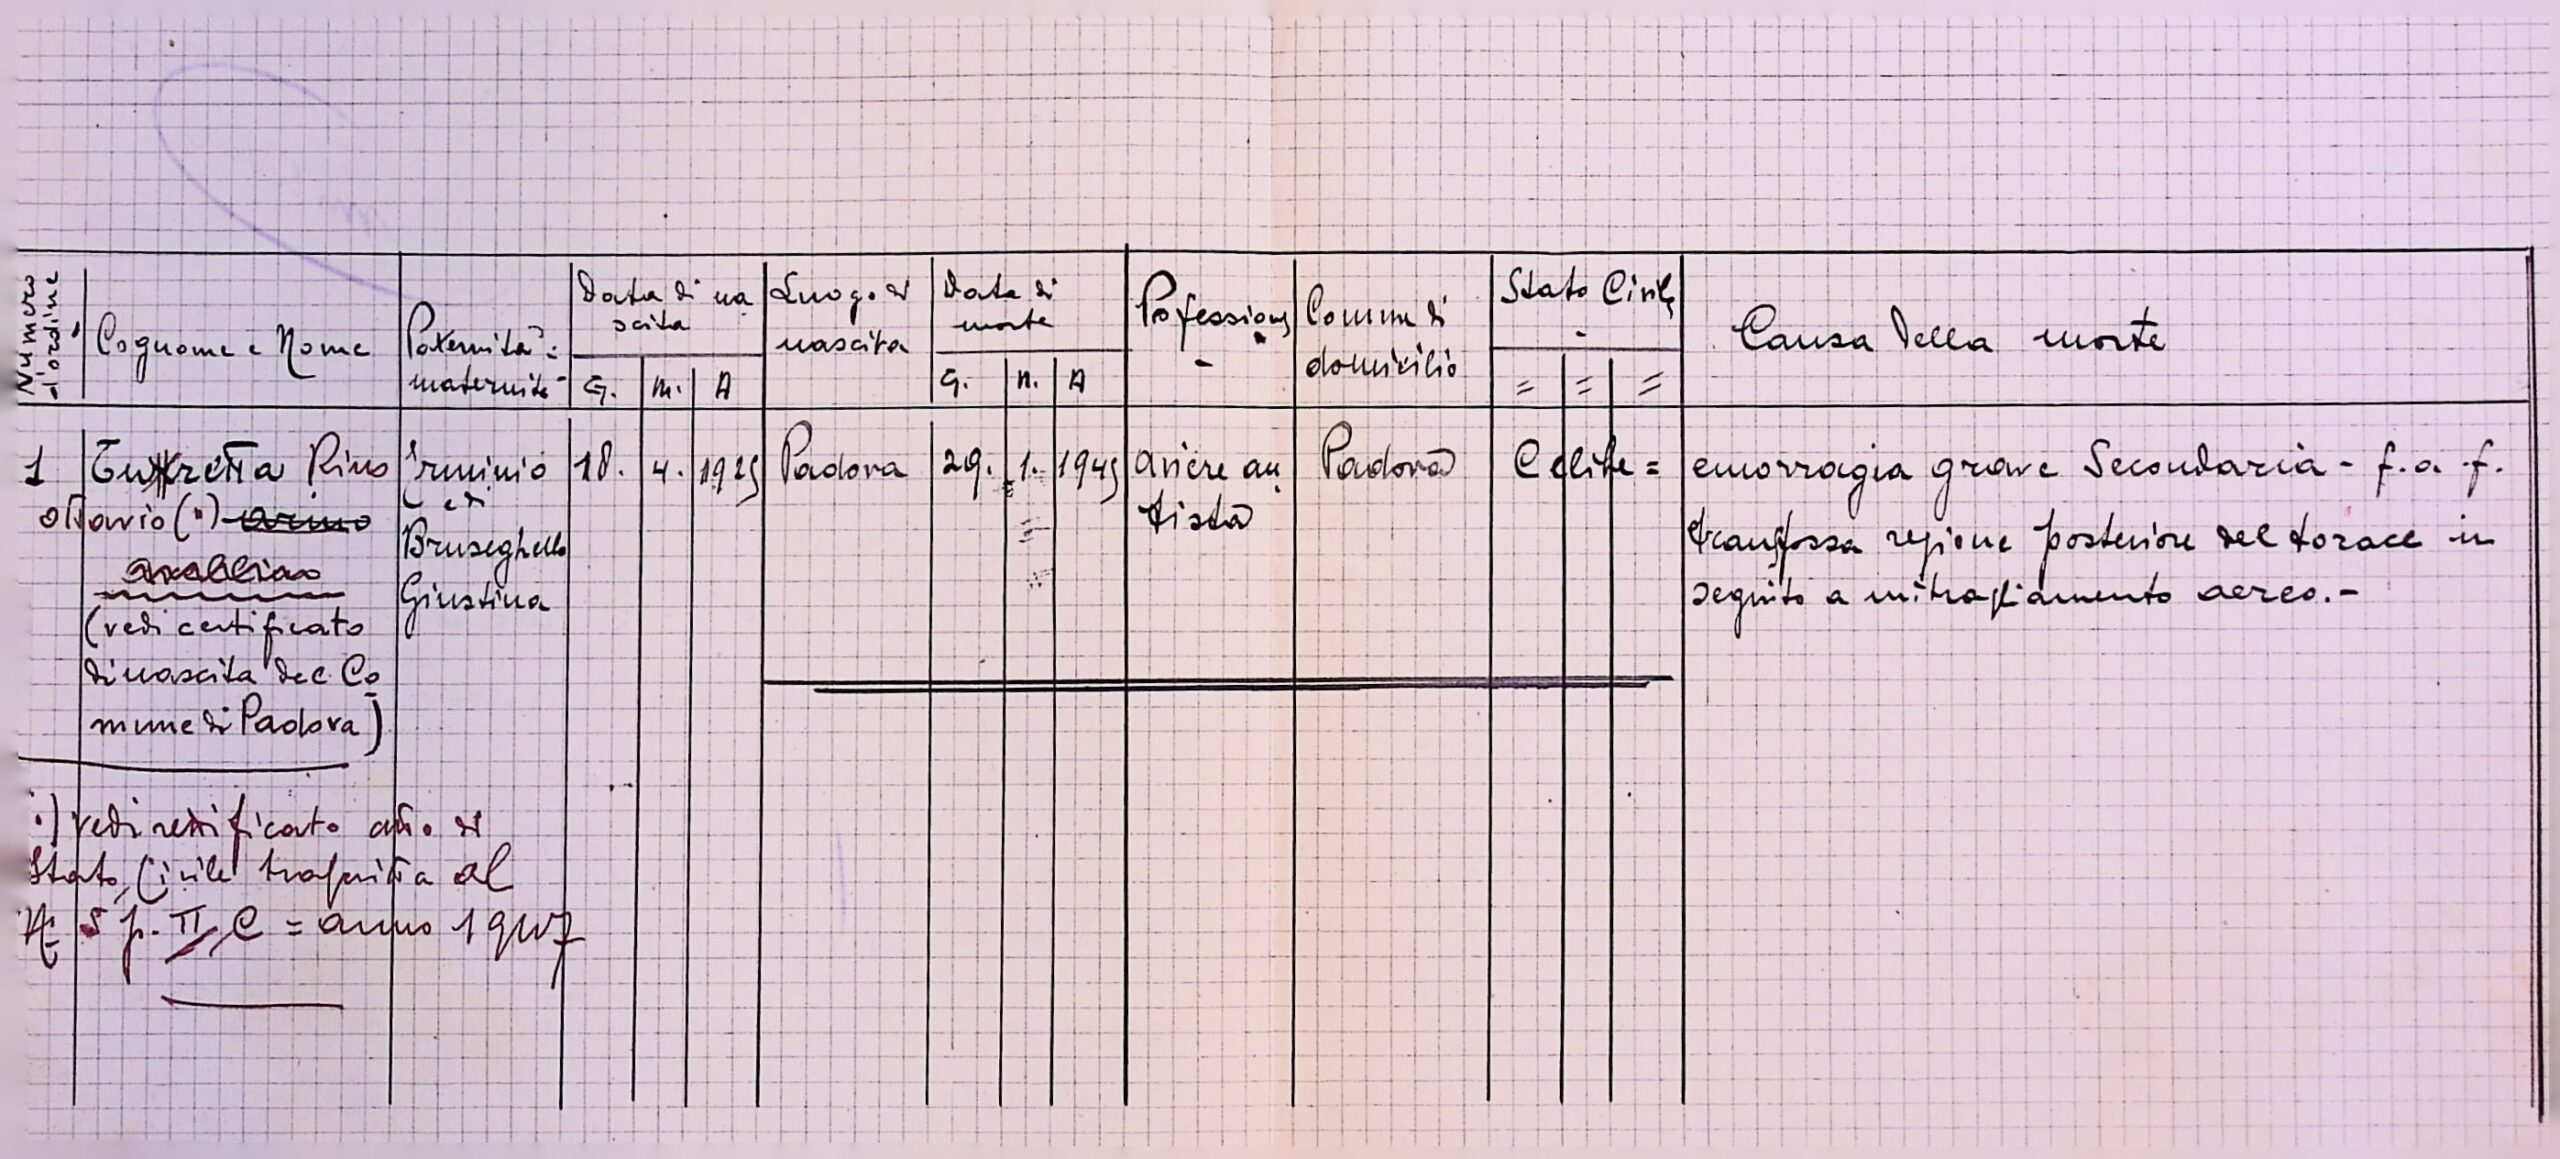 Numero d'ordine
Cognome e Nome
Paternità =
maternità
Data di na
scita
G. M. A
Luog. di
nascita
Data di
morte
G. M. A
Professione
Comune di
domicilio
Stato Civile
= = =
Causa della morte
1
Rino
Ottavio (•)
(vedi certificato
di nascita del Co
mune di Padova)
Erminio
e di
Bruseghello
Giustina
18. 4. 1925
Padova
29. 1. 1945
Aviere au
tista
Padova
Celibe =
emorragia grave Secondaria - f. a. f.
transfossa regione posteriore del torace in
seguito a mitragliamento aereo. -
•) vedi rettificato atto di
Stato Civile al
N. 5 p. II C = anno 1947